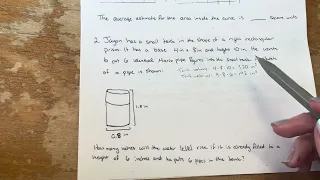 The average estimate for the area inside the curve is ____ square units
2. Jaxon has a small tank in the shape of a right rectangular
prism. It has a base 4 in x 8 in and height 10 in. He wants
to put 6 identical Mario pipe figures into the small tank. A
of a pipe is shown:
1.8 in
0.8 in
How many inches will the water level rise if it is already filled to a
height of 6 inches and he puts 6 pipes in the tank?